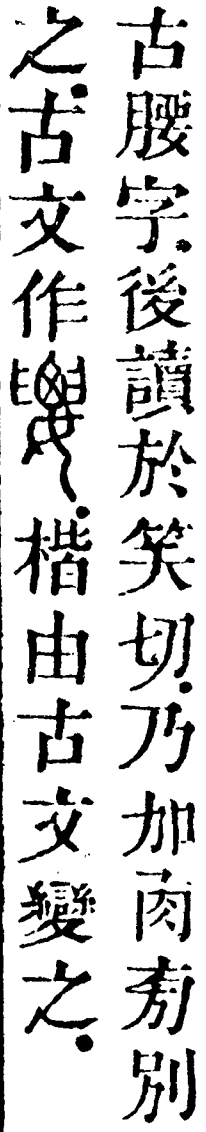 古腰字.後讀於笑切.乃加肉𣃟別
之.古文作.楷由古文變之.